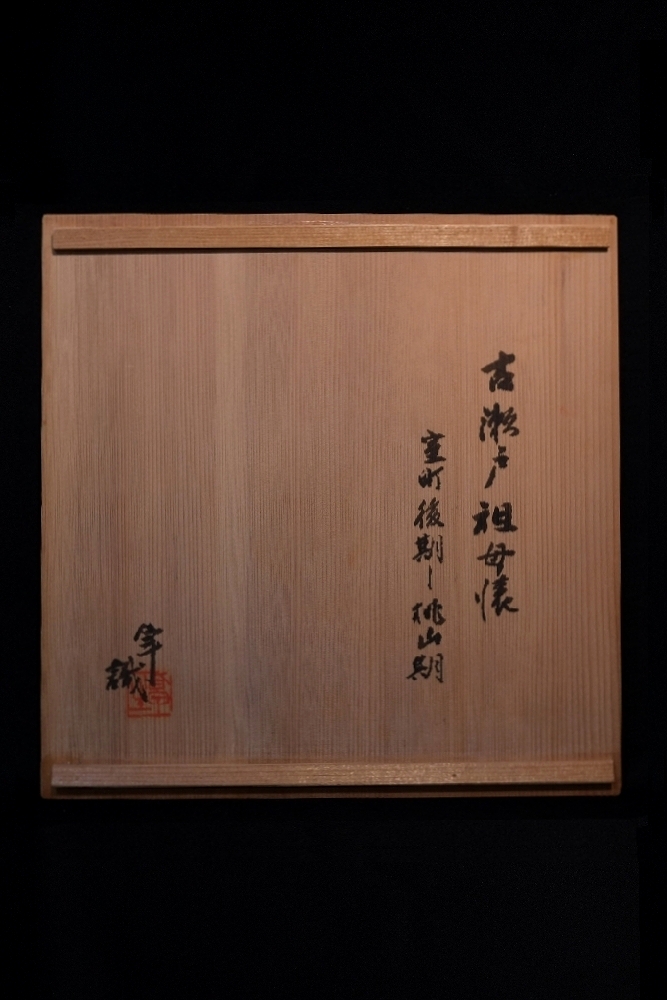 古瀬戸祖母懐
室町後期〜桃山期
識